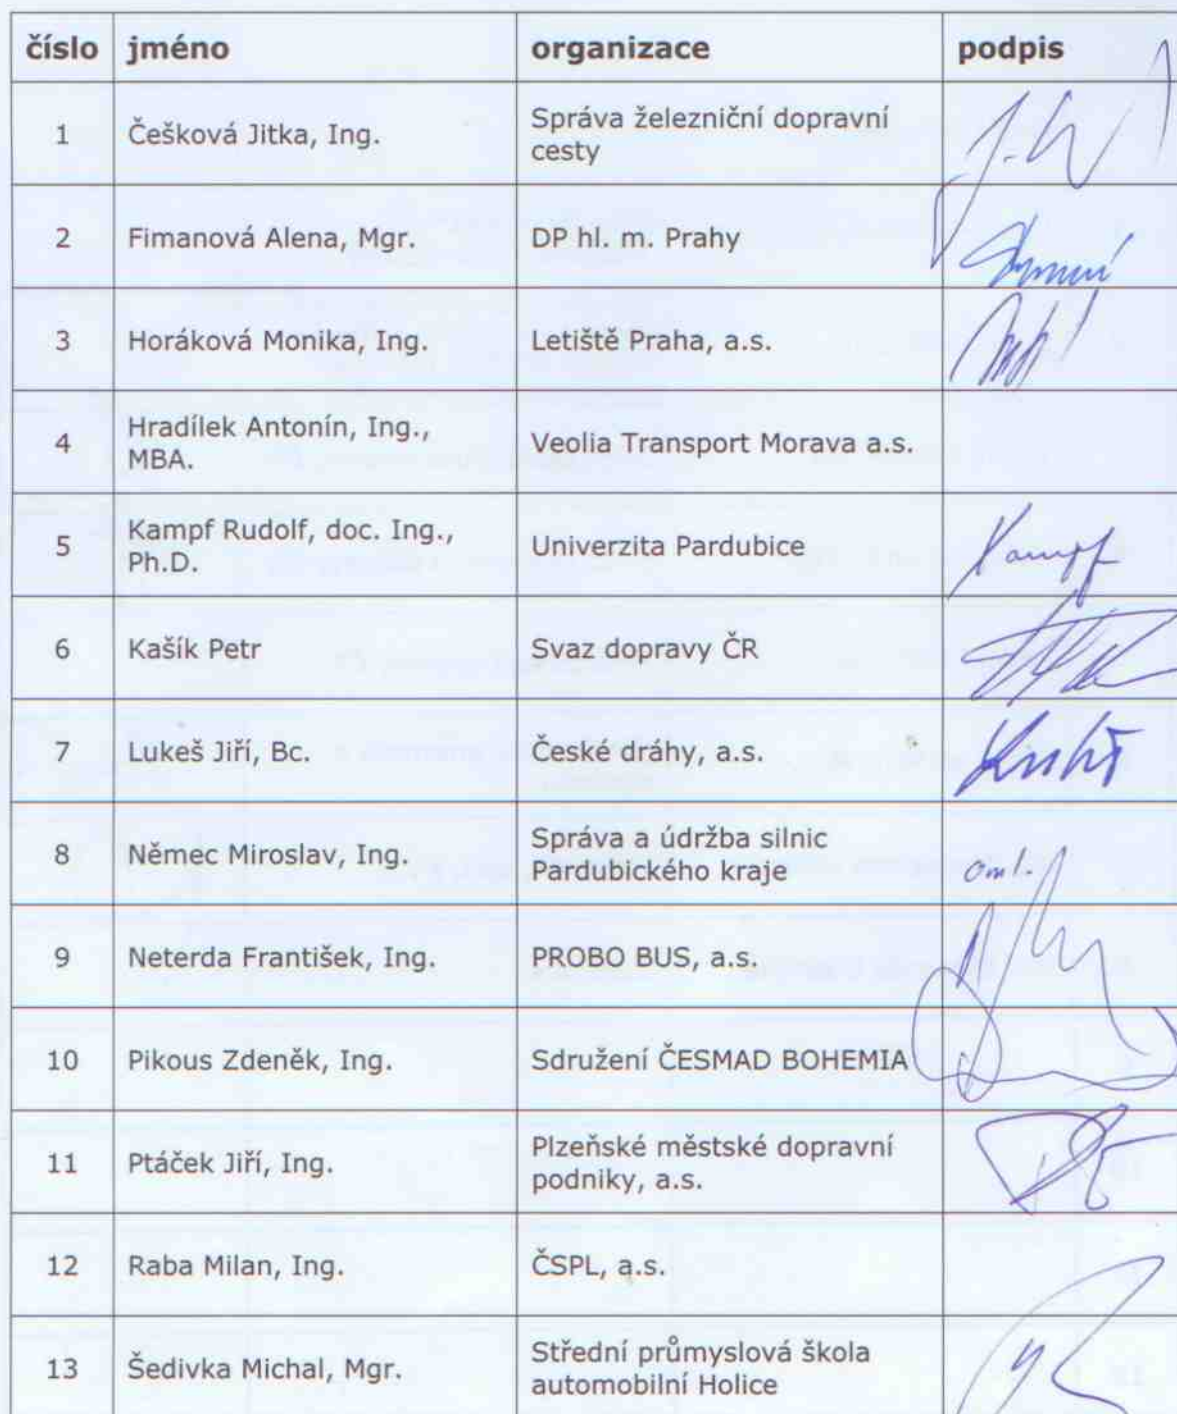 číslo jméno organizace podpis
1 Češková Jitka, Ing. Správa železniční dopravní
cesty
2 Fimanová Alena, Mgr. DP hl. m. Prahy
3 Horáková Monika, Ing. Letiště Praha, a.s.
4 Hradílek Antonín, Ing.,
MBA. Veolia Transport Morava a.s.
5 Kampf Rudolf, doc. Ing.,
Ph.D. Univerzita Pardubice Kampf
6 Kašík Petr Svaz dopravy ČR
7 Lukeš Jiří, Bc. České dráhy, a.s.
8 Němec Miroslav, Ing. Správa a údržba silnic
Pardubického kraje oml.
9 Neterda František, Ing. PROBO BUS, a.s.
10 Pikous Zdeněk, Ing. Sdružení ČESMAD BOHEMIA
11 Ptáček Jiří, Ing. Plzeňské městské dopravní
podniky, a.s.
12 Raba Milan, Ing. ČSPL, a.s.
13 Šedivka Michal, Mgr. Střední průmyslová škola
automobilní Holice